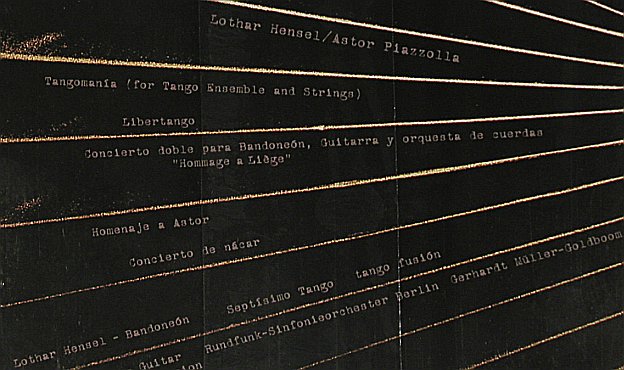 Lothar Hensel/Astor Piazzolla
Tangomanía (for Tango Ensemble and Strings)
Libertango
Concierto doble para Bandoneón, Guitarra y orquesta de cuerdas
"Hommage a Liège"
Homenaje a Astor
Concierto de nácar
Septísimo Tango tango fusión
Lothar Hensel - Bandoneón
Rundfunk-Sinfonieorchester Berlin Gerhardt Müller-Goldboom
Guitar